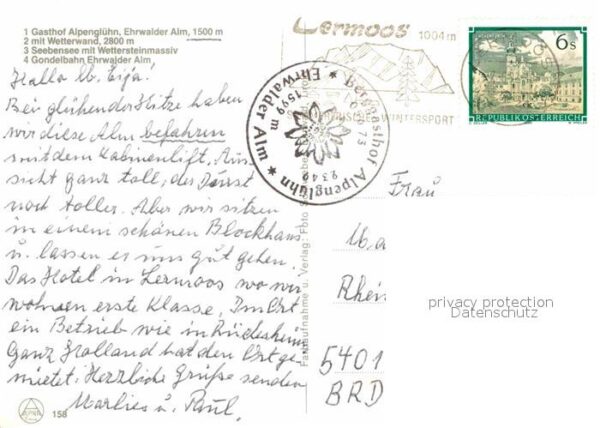 1 Gasthof Alpenglühn, Ehrwalder Alm, 1500 m
2 mit Wetterwand, 2800 m
3 Seebensee mit Wettersteinmassiv
4 Gondelbahn Ehrwalder Alm
Hallo lb. Eija!
Bei glühender Hitze haben
wir diese Alm befahren
mit dem Kabinenlift, Aus
sicht ganz toll, der Durst
noch toller. Aber wir sitzen
in einem schönen Blockhaus
u. lassen es uns gut gehen.
Das Hotel in Lermoos wo wir
wohnen erste Klasse. Im Ort
ein Betrieb wie in Rüdesheim
Ganz Holland hat den Ort ge
mietet. Herzliche Grüße senden
Marlies u. Paul.
158
Lermoos
1004 m
WINTERSPORT
Berggasthof Alpenglühn
Ehrwalder Alm
1599 m
6 s
REPUBLIK ÖSTERREICH
Farbaufnahme u. Verlag: Foto
Frau
Ma
Rhein
5401
BRD
privacy protection
Datenschutz